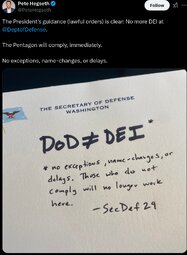 Pete Hegseth
@PeteHegseth
Follow
The President's guidance (lawful orders) is clear: No more DEI at
@DeptofDefense.
The Pentagon will comply, immediately.
No exceptions, name-changes, or delays.
THE SECRETARY OF DEFENSE
WASHINGTON
DoD ≠ DEI*
* no exceptions, name-changes, or
delays. Those who do not
comply will no longer work
here.
-SecDef 29